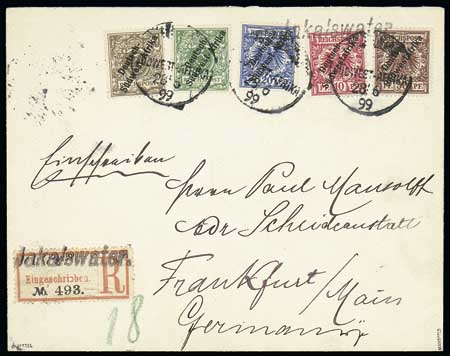 Jakalswater.
Deutsch-
Südwest-Afrika
SÜDWEST-AFRIKA
28/6
99
Einschreiben
Herrn Paul
adr Scheideanstalt
Frankfurt/Main
Germany
Jakalswater.
Eingeschrieben.
R
№ 493.
18